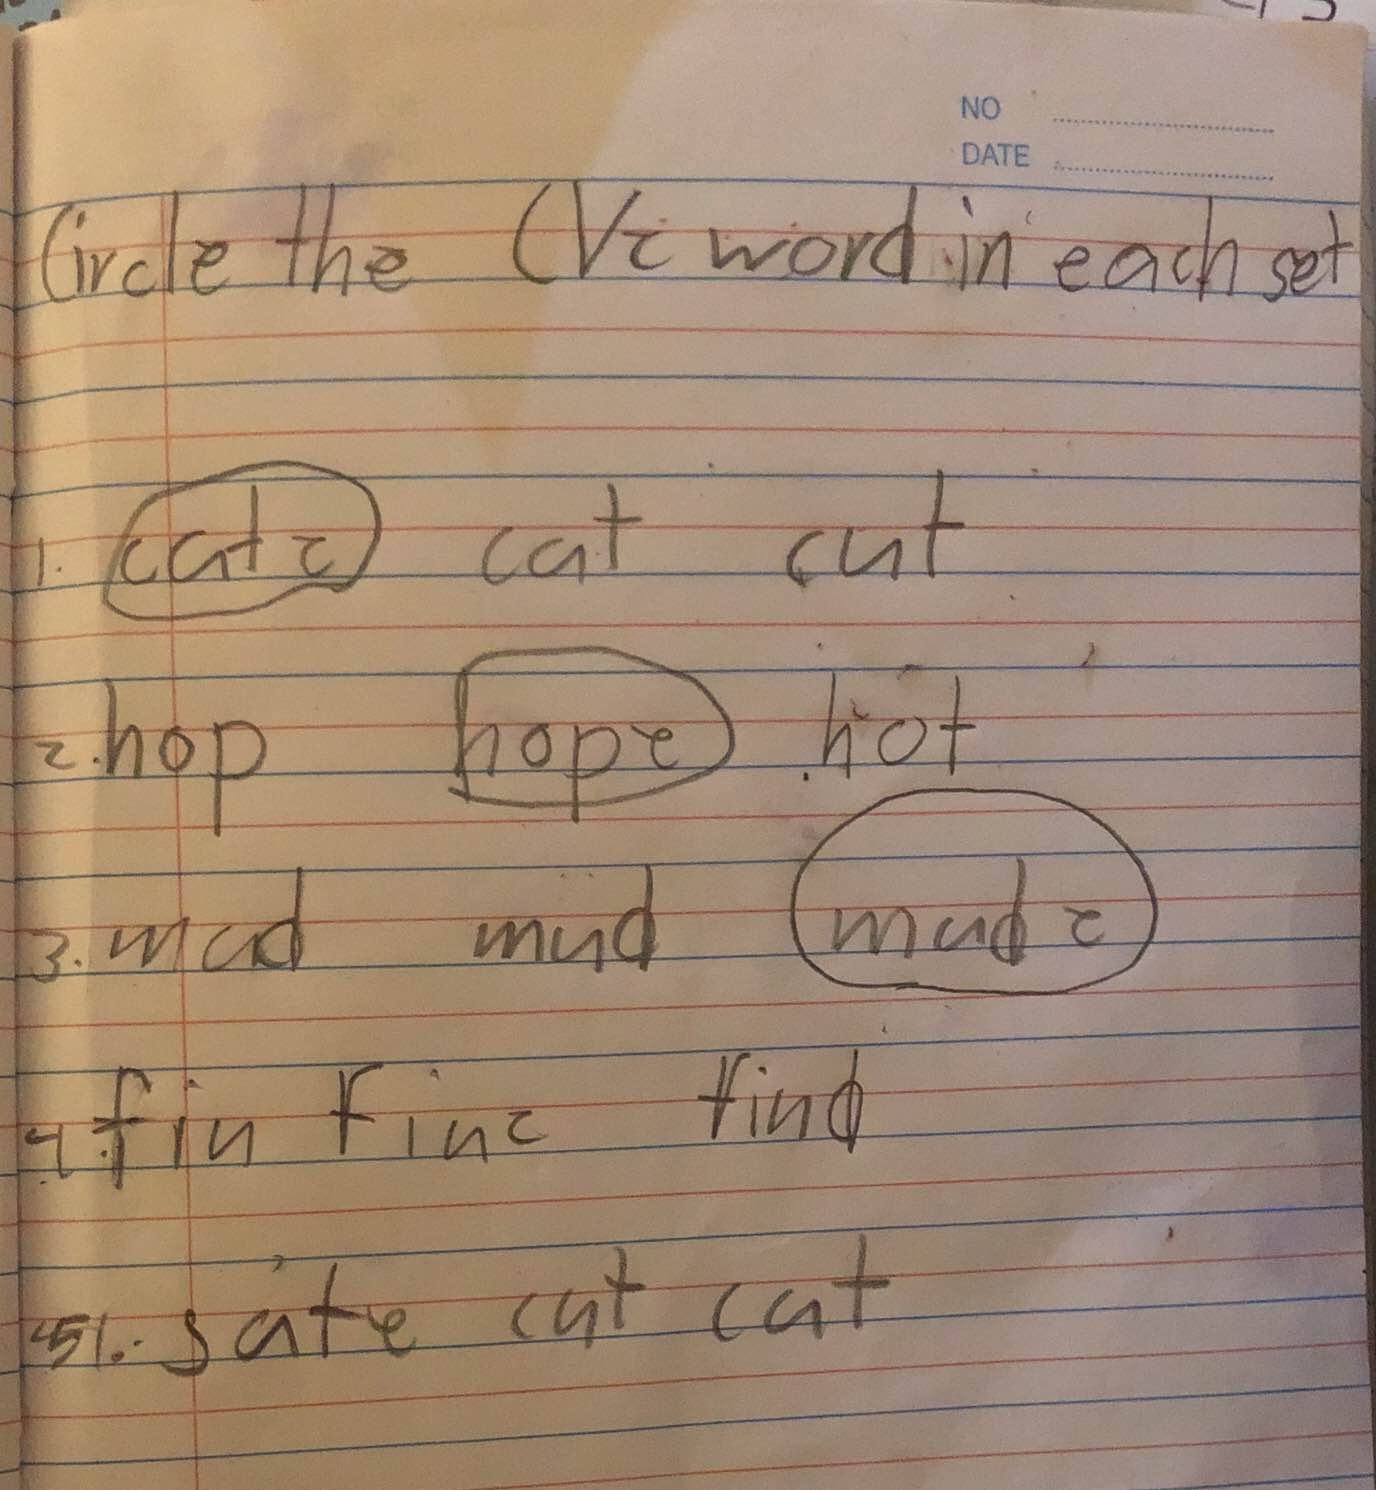 NO
DATE
Circle the CVe word in each set
1. cate cat cut
2. hop hope hot
3. mad mud made
4. fin Fine find
5. sate cut cat